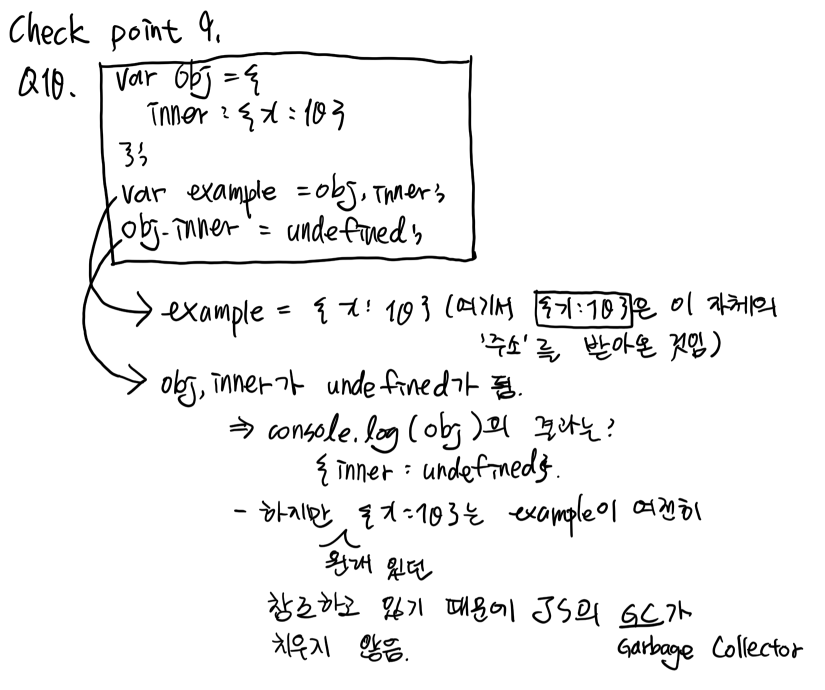 Check point 9.
Q10.
var obj = {
inner : { x : 10 }
};
var example = obj.inner;
obj.inner = undefined;
example = { x : 10 } (여기서 {x:10}은 이 자체의
'주소'를 받아온 것임)
obj.inner가 undefined가 됨.
⇒ console.log(obj)의 결과는?
{ inner : undefined}.
- 하지만 {x:10}는 example이 여전히
원래 있던
참조하고 있기 때문에 JS의 GC가
치우지 않음.
Garbage Collector